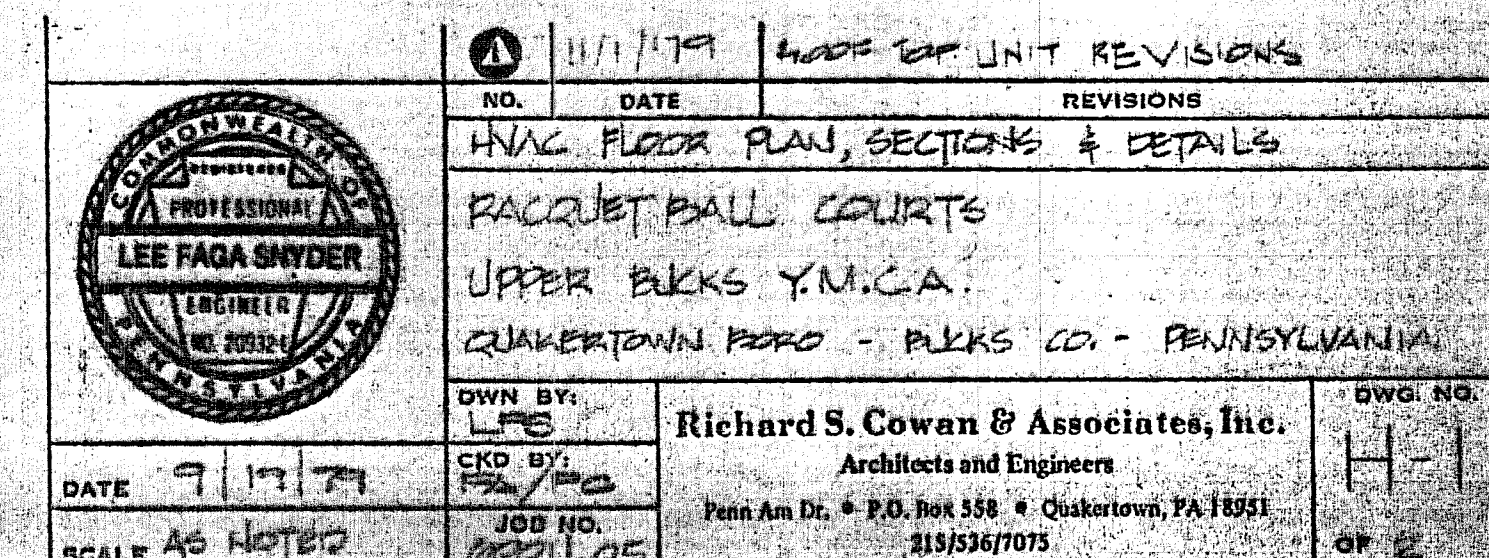 11/1/79 ROOF TOP UNIT REVISIONS
NO. DATE REVISIONS
HVAC FLOOR PLAN, SECTIONS & DETAILS
RACQUET BALL COURTS
UPPER BUCKS Y.M.C.A.
QUAKERTOWN BORO - BUCKS CO. - PENNSYLVANIA
COMMONWEALTH OF
REGISTERED
PROFESSIONAL
LEE FAGA SNYDER
ENGINEER
NO.
PENNSYLVANIA
DATE 9/17/79
SCALE AS NOTED
DWN BY:
LFS
CKD BY:
JOB NO.
Richard S. Cowan & Associates, Inc.
Architects and Engineers
Penn Am Dr. • P.O. Box 558 • Quakertown, PA 18951
215/536/7075
DWG. NO.
H-1
OF